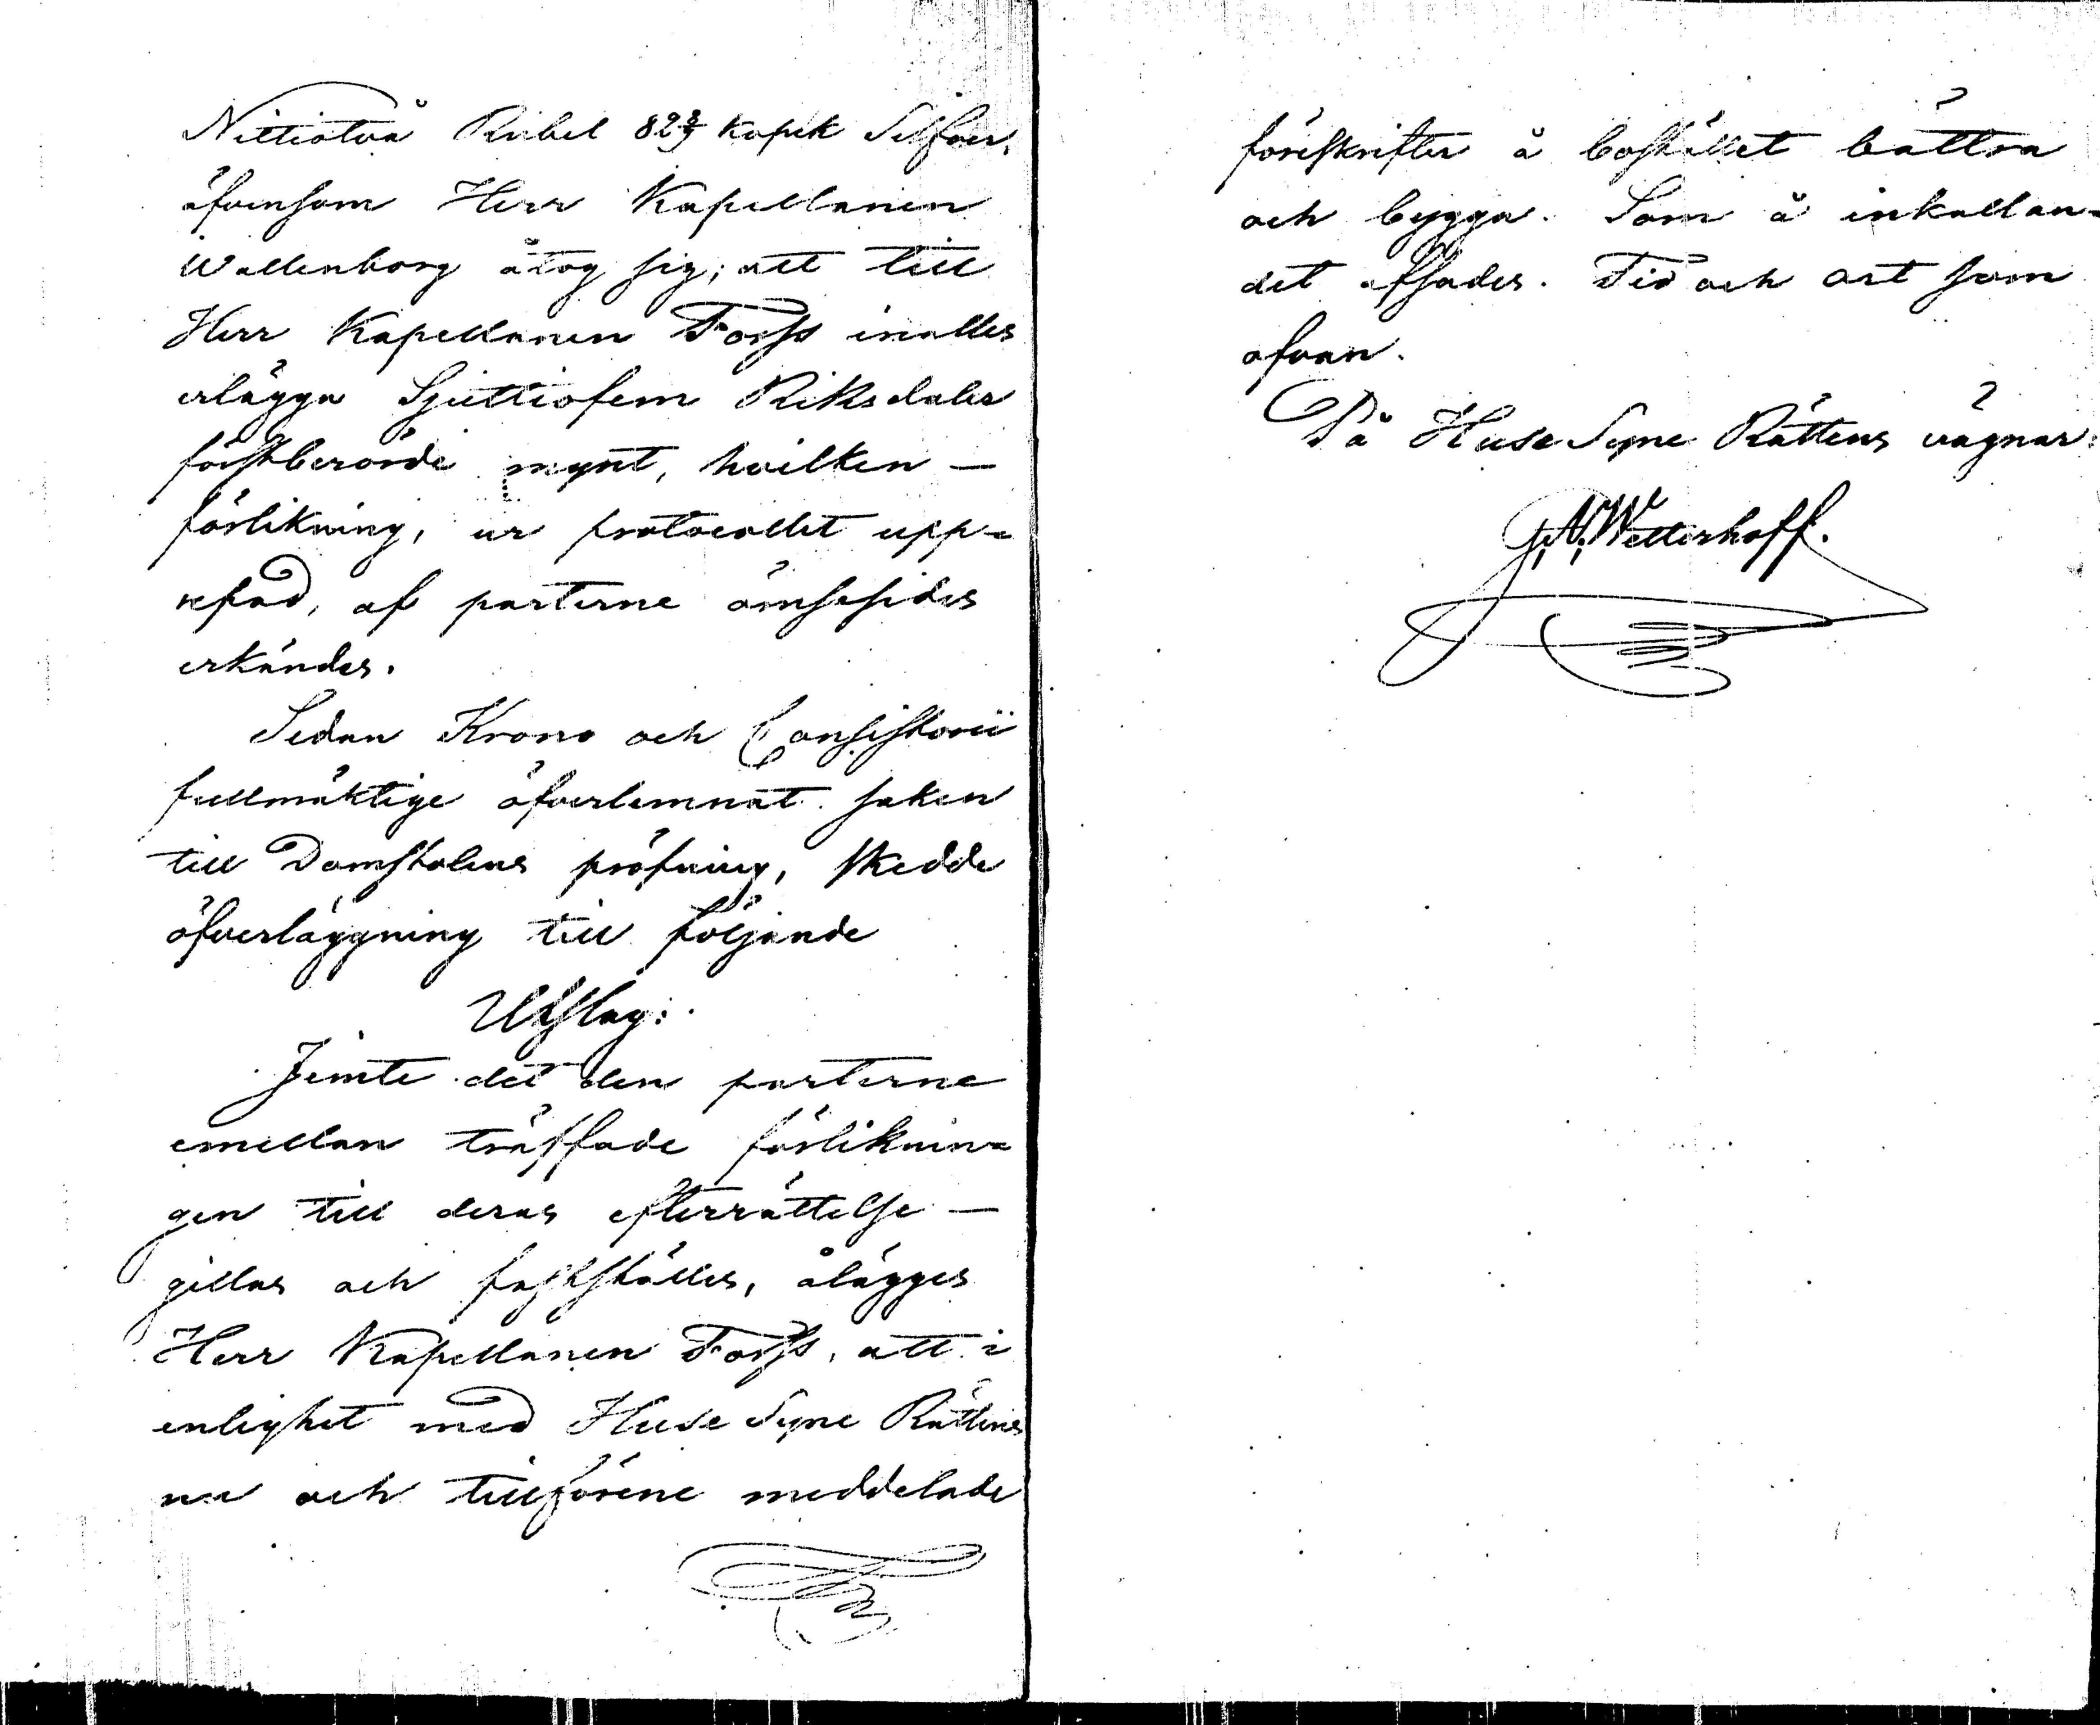 Nittiotvå Rubel 82 2/7 kopek Silfver,
äfvensom Herr Kapellanen
Wallenborg åtog sig; att till
Herr Kapellanen Forss inalles
erlägga Sjuttiofem Riksdaler
förstberörde mynt, hvilken —
förlikning, ur protocollet upp=
repad, af parterne ömsesides
erkändes.
Sedan Krono och Consistorii
fullmäktige öfverlemnat saken
till Domstolens pröfning, skedde
öfverläggning till följande
Utslag:
Jemte det den parterne
emellan träffade förliknin=
gen till deras efterrättelse —
gillas och fastställes, ålägges
Herr Kapellanen Forss, att i
enlighet med Huse Syne Rättens
nu och tillförene meddelade
föreskrifter å bostället bättra
och bygga. Som å inkallan=
det afsades. Tid och ort som
ofvan.
På Huse Syne Rättens vägnar:
G.A. Wetterhoff.